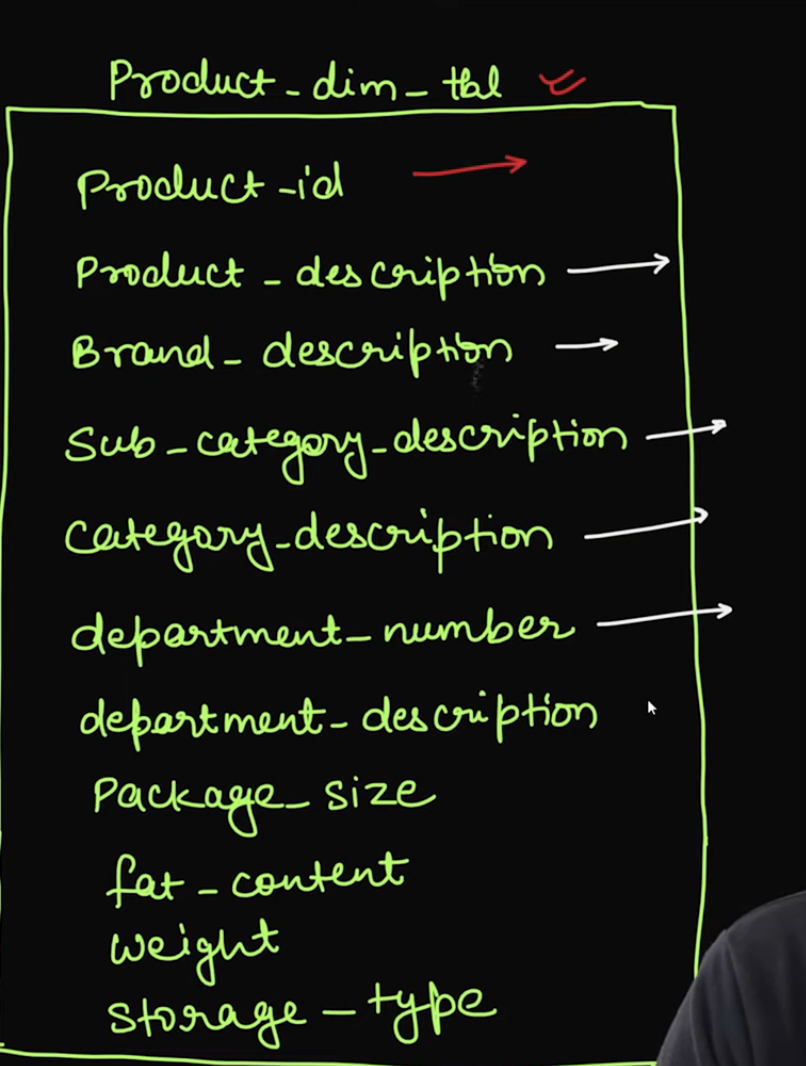 Product_dim_tbl
Product_id
Product_description
Brand_description
Sub_category_description
Category_description
department_number
department_description
Package_size
fat_content
weight
storage_type